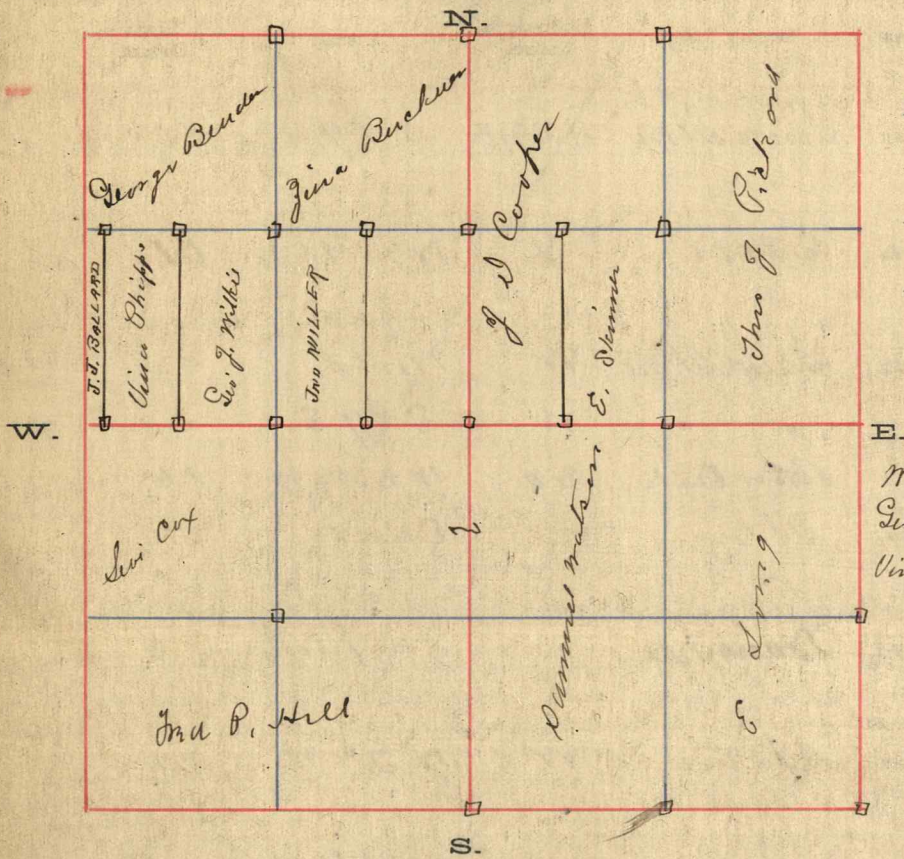 N.
George Bender
Zina Buckner
J D Cooper
Thos J Pickard
J.J. BALLARD
Vina Phipps
Geo J. Wilkie
JNO MILLER
E. Skinner
W.
E.
Levi Cox
Samuel Watson
E Long
Fred P. Hill
S.